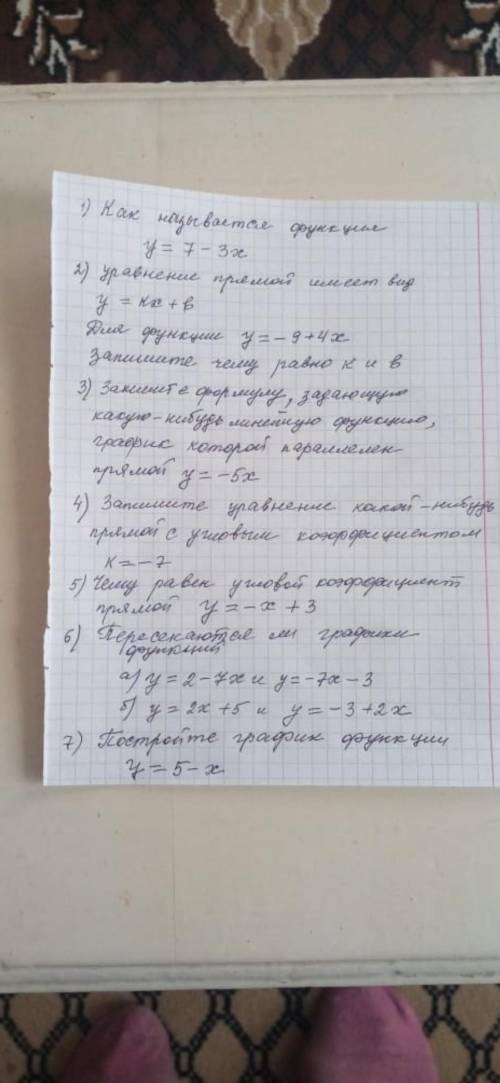 1) Как называется функция
y = 7 - 3x
2) уравнение прямой имеет вид
y = кx + в
Для функции y = - 9 + 4x
Запишите чему равно к и в
3) Запишите формулу, задающую
какую-нибудь линейную функцию,
график которой параллелен
прямой y = -5x
4) Запишите уравнение какой-нибудь
прямой с угловым коэффициентом
к = - 7
5) Чему равен угловой коэффициент
прямой y = -x + 3
6) Пересекаются ли графики
функций
а) y = 2 - 7x и y = -7x - 3
б) y = 2x + 5 и y = -3 + 2x
7) Постройте график функции
y = 5 - x